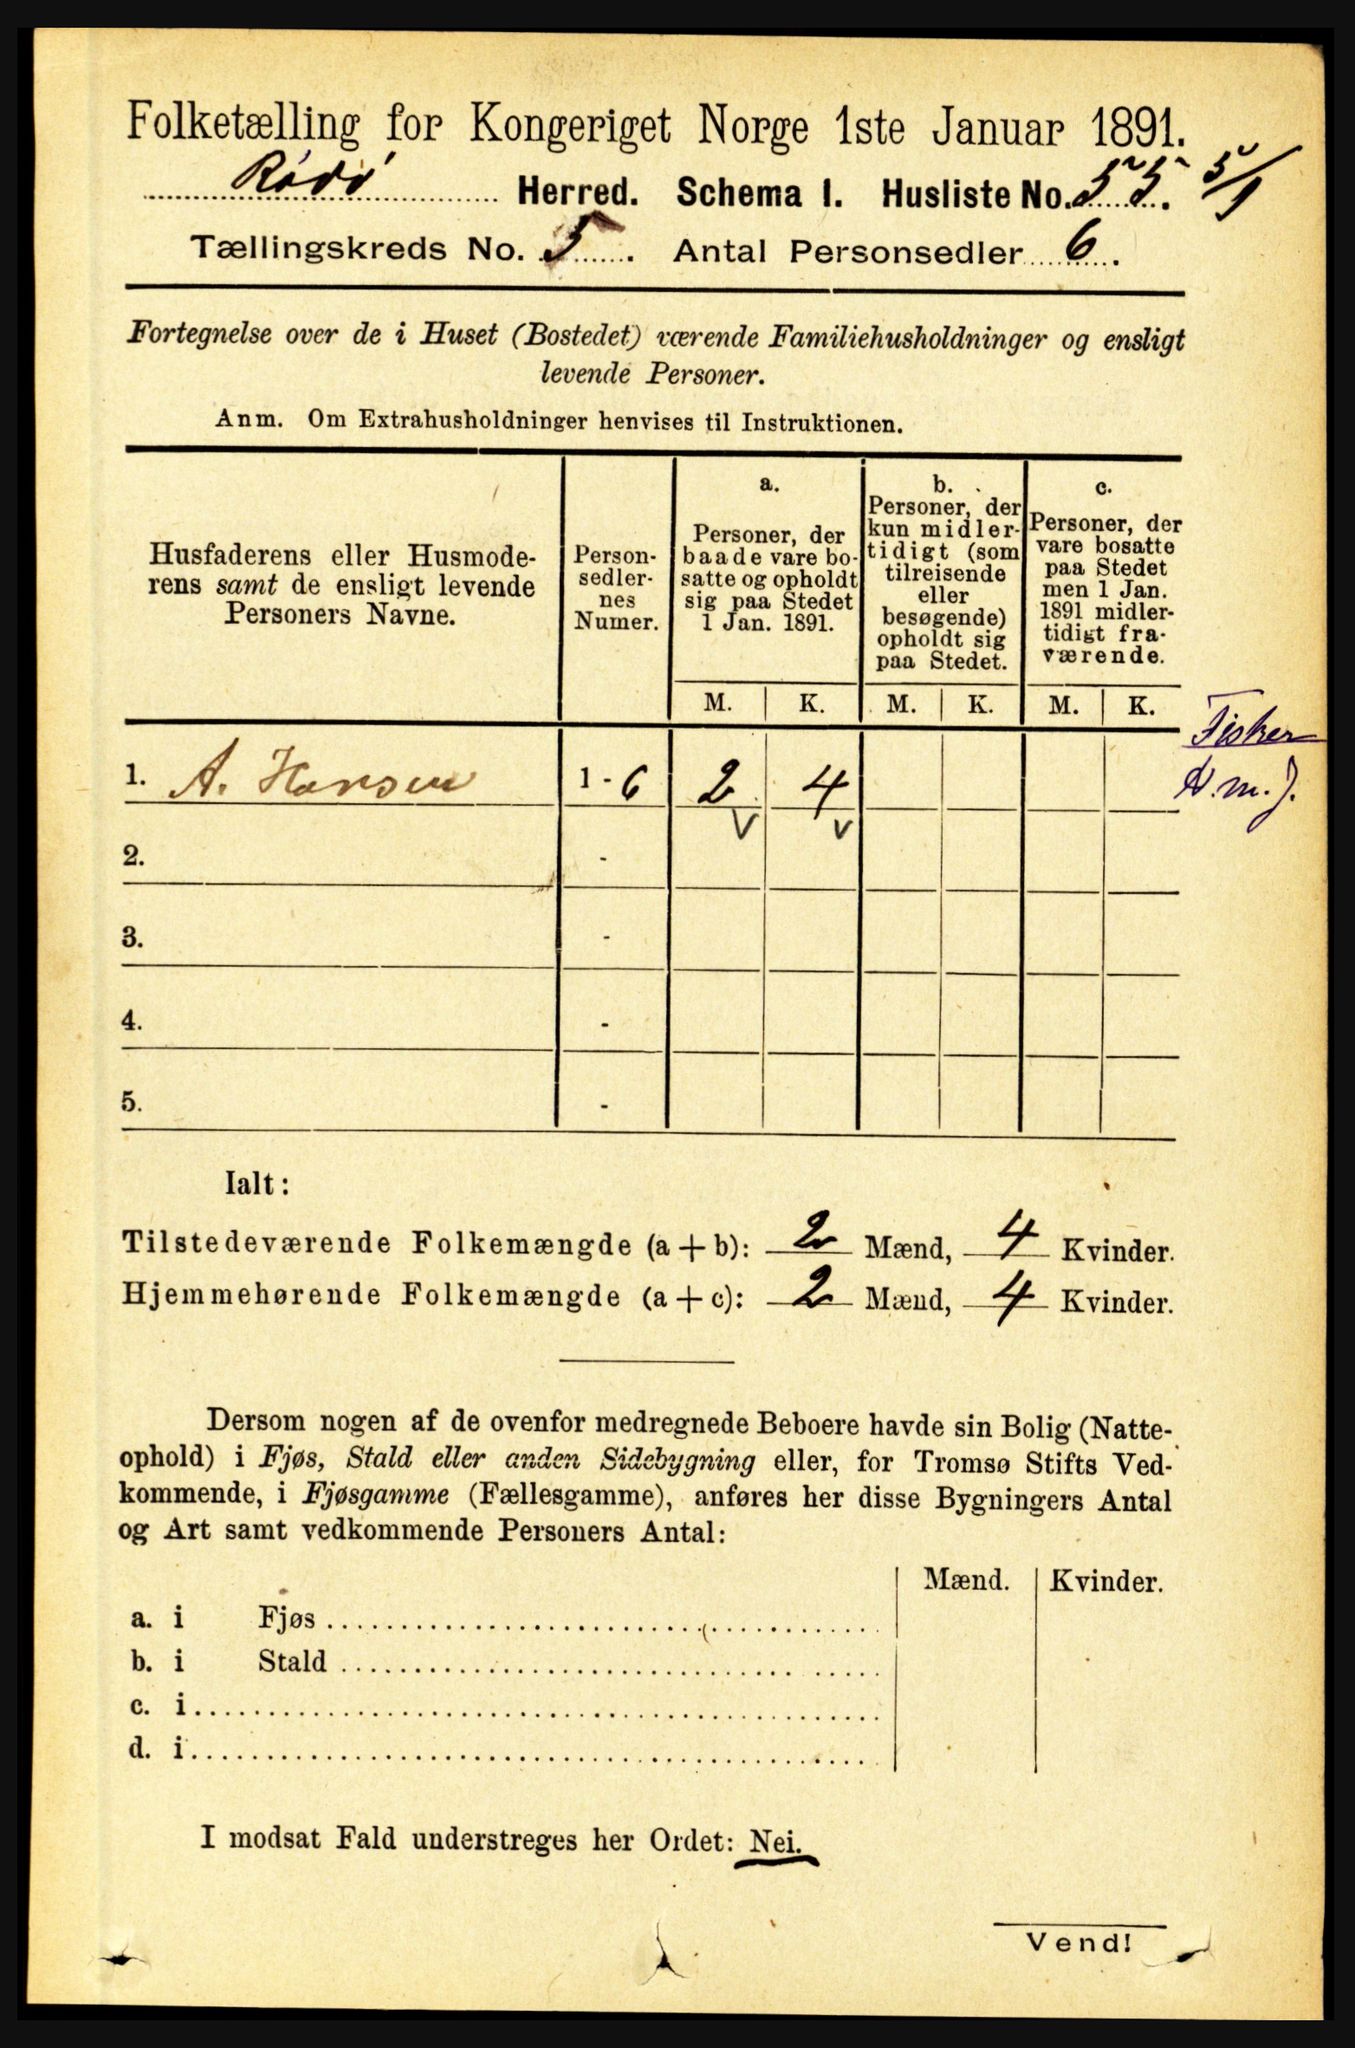 Folketælling for Kongeriget Norge 1ste Januar 1891.
Rödö Herred. Schema I. Husliste No. 55. 5/1
Tællingskreds No. 5. Antal Personsedler 6.
Fortegnelse over de i Huset (Bostedet) værende Familiehusholdninger og ensligt
levende Personer.
Anm. Om Extrahusholdninger henvises til Instruktionen.
Husfaderens eller Husmode-
rens samt de ensligt levende
Personers Navne.
Person-
sedler-
nes
Numer.
a.
Personer, der
baade vare bo-
satte og opholdt
sig paa Stedet
1 Jan. 1891.
b.
Personer, der
kun midler-
tidigt (som
tilreisende
eller
besøgende)
opholdt sig
paa Stedet.
c.
Personer, der
vare bosatte
paa Stedet
men 1 Jan.
1891 midler-
tidigt fra-
værende.
M. K. M. K. M. K.
Fisker
1. A. Hansen 1 - 6 2 4
v v
2. -
3. -
4. -
5. -
Ialt:
Tilstedeværende Folkemængde (a + b): 2 Mænd, 4 Kvinder.
Hjemmehørende Folkemængde (a + c): 2 Mænd, 4 Kvinder.
Dersom nogen af de ovenfor medregnede Beboere havde sin Bolig (Natte-
ophold) i Fjøs, Stald eller anden Sidebygning eller, for Tromsø Stifts Ved-
kommende, i Fjøsgamme (Fællesgamme), anføres her disse Bygningers Antal
og Art samt vedkommende Personers Antal:
Mænd. Kvinder.
a. i Fjøs
b. i Stald
c. i
d. i
I modsat Fald understreges her Ordet: Nei.
Vend!